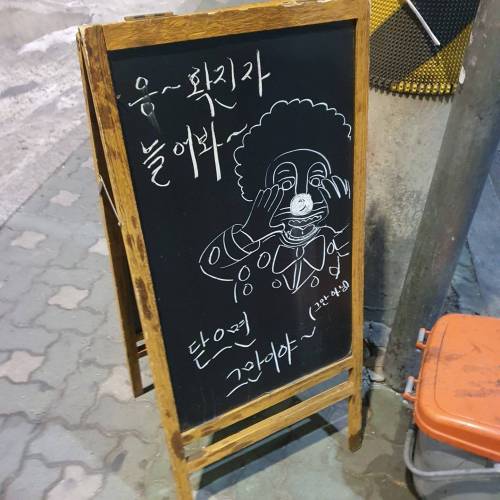 응~ 확진자
늘어봐~
닫으면
그만이야~
(그만 아님)